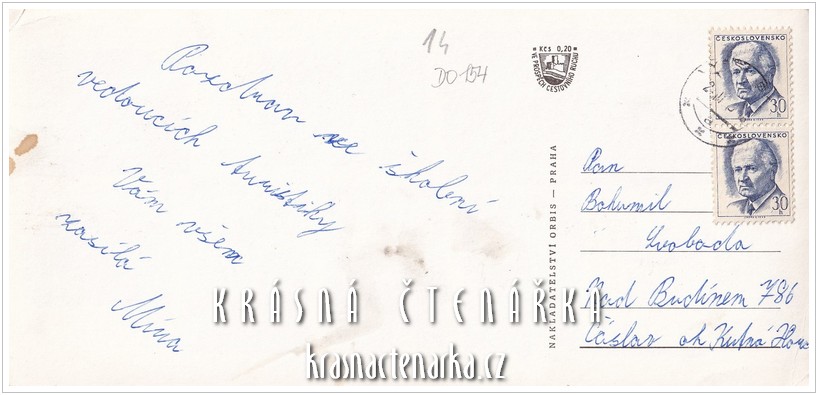 14
DO 154
Pozdrav ze školení
vedoucích turistiky
Vám všem
zasílá
Mína
Kčs 0,20
VE PROSPĚCH CESTOVNÍHO RUCHU
NAKLADATELSTVÍ ORBIS — PRAHA
ČESKOSLOVENSKO
30 h
ČESKOSLOVENSKO
30 h
Pan
Bohumil
Svoboda
Nad Budínem 786
Čáslav ok Kutná Hora
KRÁSNÁ ČTENÁŘKA
krasnactenarka.cz